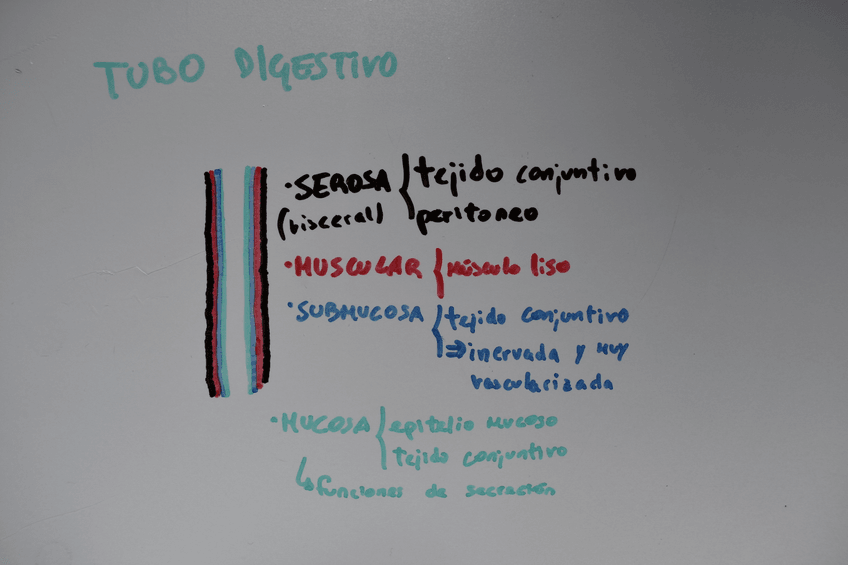 TUBO DIGESTIVO
·SEROSA { tejido conjuntivo
(visceral) peritoneo
·MUSCULAR { músculo liso
·SUBMUCOSA { tejido conjuntivo
⇒ inervada y muy
vascularizada
·MUCOSA { epitelio mucoso
tejido conjuntivo
↳ funciones de secreción